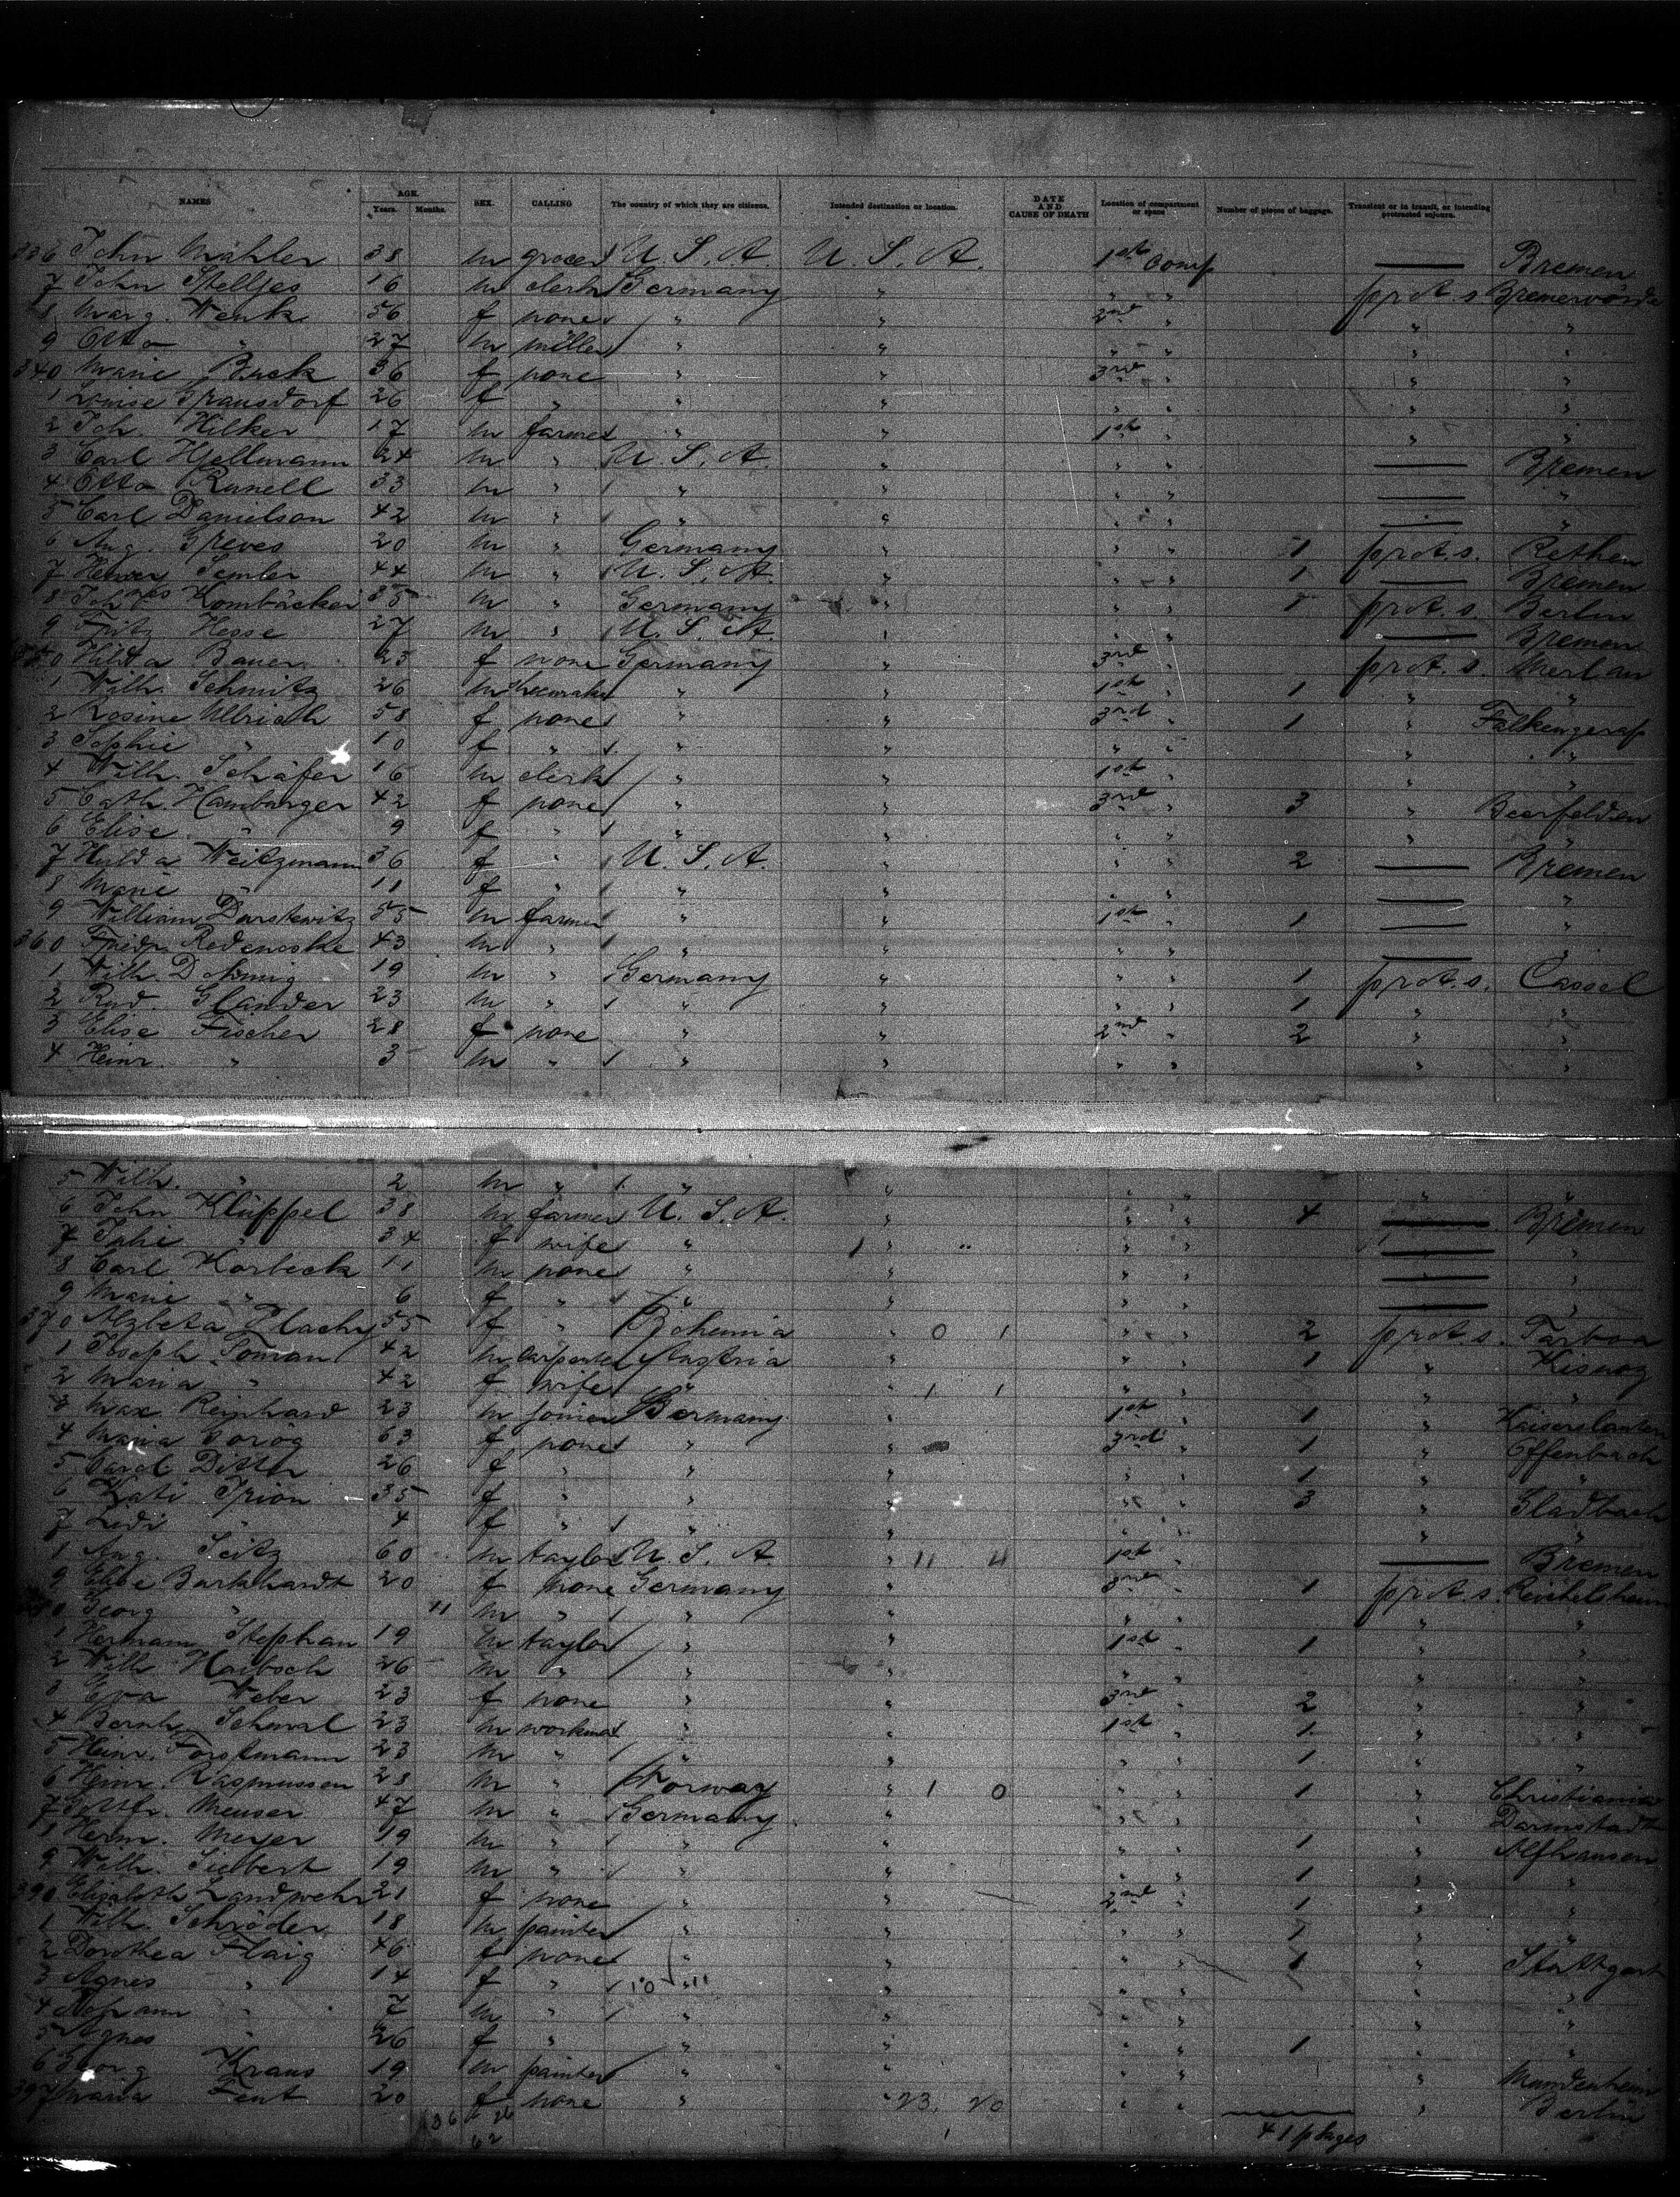 NAMES AGE. Years. Months. SEX. CALLING The country of which they are citizens. Intended destination or location. DATE AND CAUSE OF DEATH Location of compartment or space Number of pieces of baggage. Transient or in transit, or intending protracted sojourn.
336 John Mähler 38 m grocer U. S. A. U. S. A. 1st Comp — Bremen
7 John Stelljes 16 m clerk Germany " " " prot. s. Bremervörde
8 Marg. Wenk 56 f none " " 2nd " " "
9 Otto " 27 m miller " " " " " "
340 Marie Buck 36 f none " " 3rd " " "
1 Louise 26 f " " " " " " "
2 Joh. Hilker 17 m farmer " " 1st " " "
3 Carl Hjellmann 24 m " U. S. A. " " " — Bremen
4 Otto Runell 33 m " " " " " — "
5 Carl Danielson 42 m " " " " " — "
6 Aug. Greves 20 m " Germany " " " 1 prot. s. Rethen
7 Henry Semler 44 m " U. S. A. " " " 1 — Bremen
8 Kombäcker 35 m " Germany " " " 1 prot. s. Berlin
9 Fritz Hesse 27 m " U. S. A. " " " — Bremen
350 Hilda Bauer 23 f none Germany " 3rd " prot. s. Merlau
1 Wilh. Schmitz 26 m " " 1st " 1 " "
2 Rosine Ullrich 58 f none " " 3rd " 1 "
3 Sophie " 10 f " " " " " " "
4 Wilh. Schäfer 16 m clerk " " 1st " " "
5 Cath. Hamburger 42 f none " " 3rd " 3 " Beerfelden
6 Elise " 9 f " " " " " " "
7 Hulda Weitzmann 36 f " U. S. A. " " " 2 — Bremen
8 Marie " 11 f " " " " " — "
9 William Darskewitz 55 m farmer " " 1st " 1 — "
360 Friedr. Redenoske 43 m " " " " " — "
1 Wilh. 19 m " Germany " " " 1 prot. s. Cassel
2 Rud. Glander 23 m " " " " " 1 " "
3 Elise Fischer 28 f none " " 2nd " 2 " "
4 Heinr. " 3 m " " " " " " "
5 Wilh. " 2 m " " " " " " "
6 John Klüppel 38 m farmer U. S. A. " " " 4 — Bremen
7 " 34 f wife " " " " — "
8 Carl Korbeck 11 m none " " " " — "
9 Marie " 6 f " " " " " — "
370 Alzbeta Plachy 55 f " Bohemia " 0 1 " " 2 prot. s.
1 Joseph Toman 42 m carpenter Austria " " " 1 "
2 Maria " 42 f wife " " 1 1 " " " "
3 Max Reinhard 23 m joiner Germany " 1st " 1 " Kaiserslautern
4 Maria Török 63 f none " " 3rd " 1 " Offenbach
5 Carol Ditter 26 f " " " " " 1 " "
6 Kati Trion 35 f " " " " " 3 " Gladbach
7 Ledi " 4 f " " " " " " "
1 Aug. Seitz 60 m taylor U. S. A. " 11 11 1st " — Bremen
9 Elise Burkhardt 20 f none Germany " 3rd " 1 prot. s. Reichelsheim
Georg " 11 m " " " " " " "
1 Hermann Stephan 19 m taylor " " 1st " 1 " "
2 Wilh. Haibach 26 m " " " " " " "
3 Eva Weber 23 f none " " 3rd " 2 " "
4 Bernh. Schmal 23 m workman " " 1st " 1 " "
5 Heinr. Forstmann 23 m " " " " " 1 " "
6 Heinr. Rasmussen 28 m " Norway " 1 0 " " 1 " Christiania
7 Gottfr. Meuser 47 m " Germany " " " " Darmstadt
1 Herm. Meyer 19 m " " " " " 1 " Alfhausen
9 Wilh. Siebert 19 m " " " " " 1 " "
390 Elisabeth Landwehr 21 f none " " 2nd " 1 " "
1 Wilh. Schröder 18 m painter " " " " 1 " "
2 Dorothea Flaig 46 f none " " " " 1 " Stuttgart
3 Agnes " 14 f " 10 " 11 " " " " "
4 " 7 m " " " " " " "
5 Agnes " 26 f " " " " " 1 " "
6 Georg Kraus 19 m painter " " " " " Mundenheim
397 Maria Fent 20 f none " " 23. 20 " " " Berlin
36 26
62
41 pkages